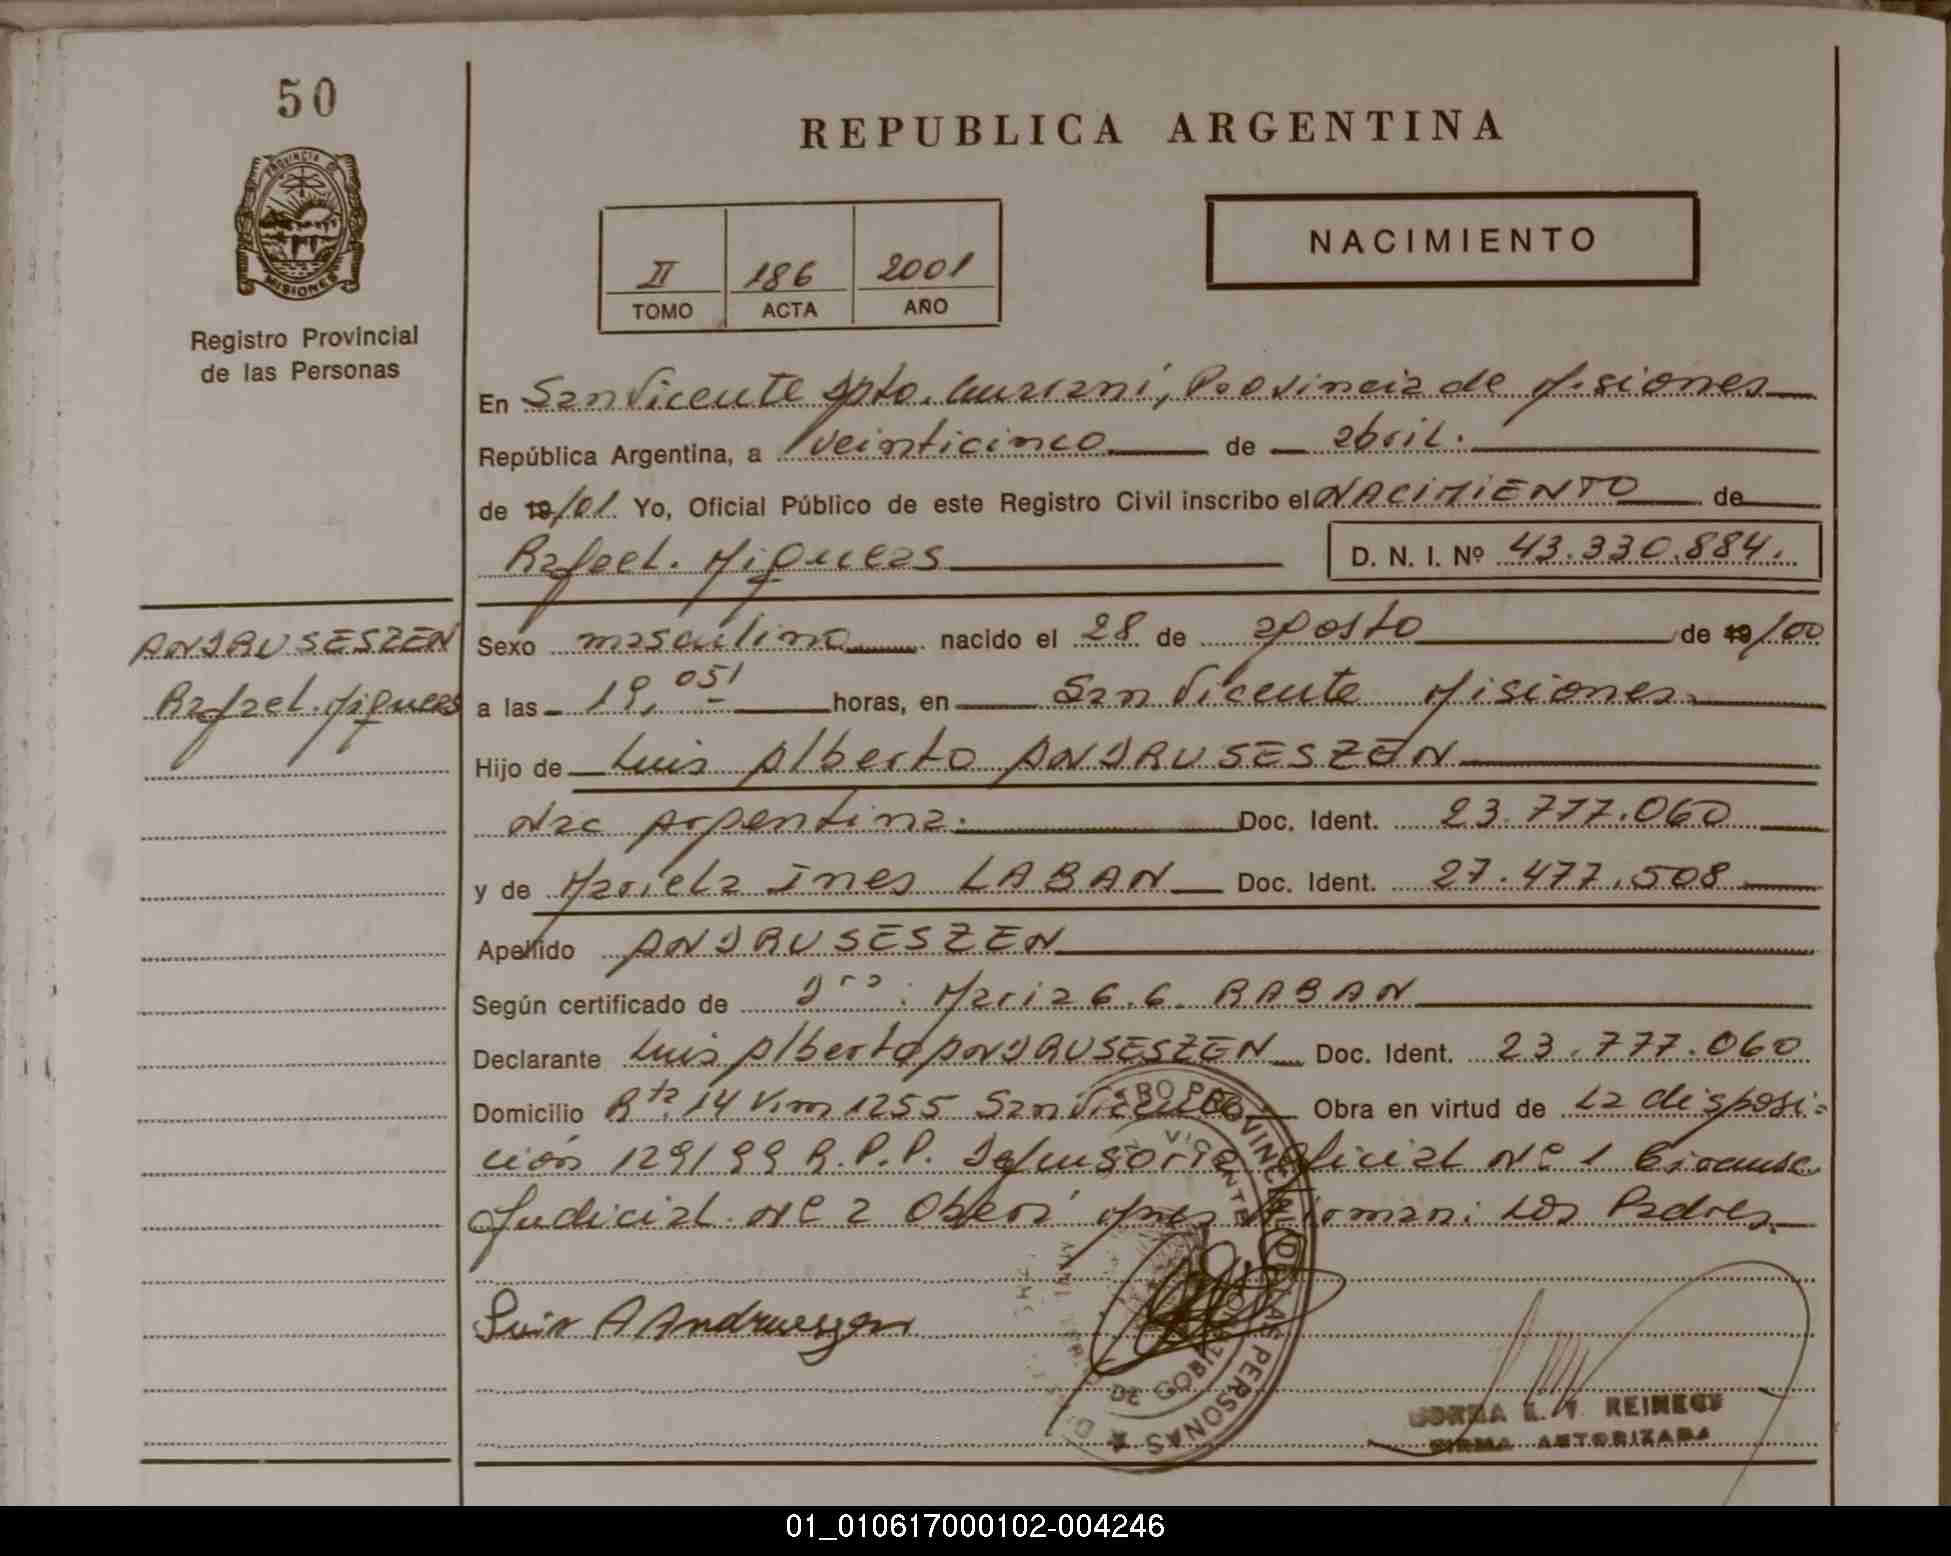 50
PROVINCIA DE
MISIONES
Registro Provincial
de las Personas
REPUBLICA ARGENTINA
II 186 2001
TOMO ACTA AÑO
NACIMIENTO
En San Vicente Dpto. Guarani, Provincia de Misiones
República Argentina, a veinticinco de abril.
de 19/01. Yo, Oficial Público de este Registro Civil inscribo el NACIMIENTO de
Rafael. Miqueas D. N. I. Nº 43.330.884.
ANDRUSESZEN
Rafael. Miqueas
Sexo masculino nacido el 28 de agosto de 19/00
a las 19,05' horas, en San Vicente Misiones
Hijo de Luis Alberto ANDRUSESZEN
Nac Argentina. Doc. Ident. 23.777.060
y de Mariela Ines LABAN Doc. Ident. 27.477.508
Apellido ANDRUSESZEN
Según certificado de Dra: Maria G.G. RABAN
Declarante Luis Alberto ANDRUSESZEN Doc. Ident. 23.777.060
Domicilio Rta. 14 Km 1255 San Vicente Obra en virtud de La disposi-
ción 129/99 R.P.P. Defensoria Oficial Nº 1 Circunsc
Judicial Nº 2 Oberá Mnes Firman: Los Padres.
Luis A Andruseszen
REINECK
FIRMA AUTORIZADA
01_010617000102-004246